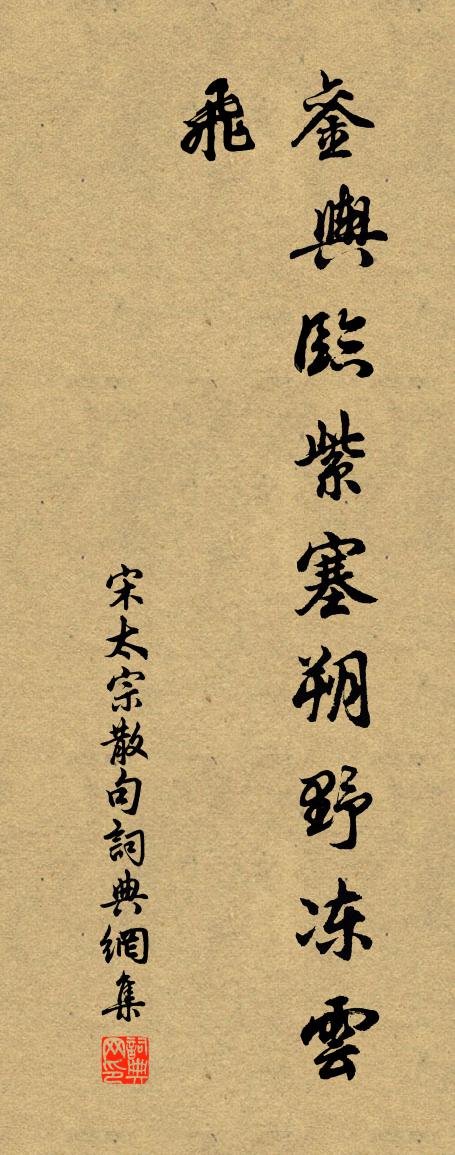 銮輿臨紫塞朔野冻雲
飛
宋太宗散句詞典網集
詞典网印